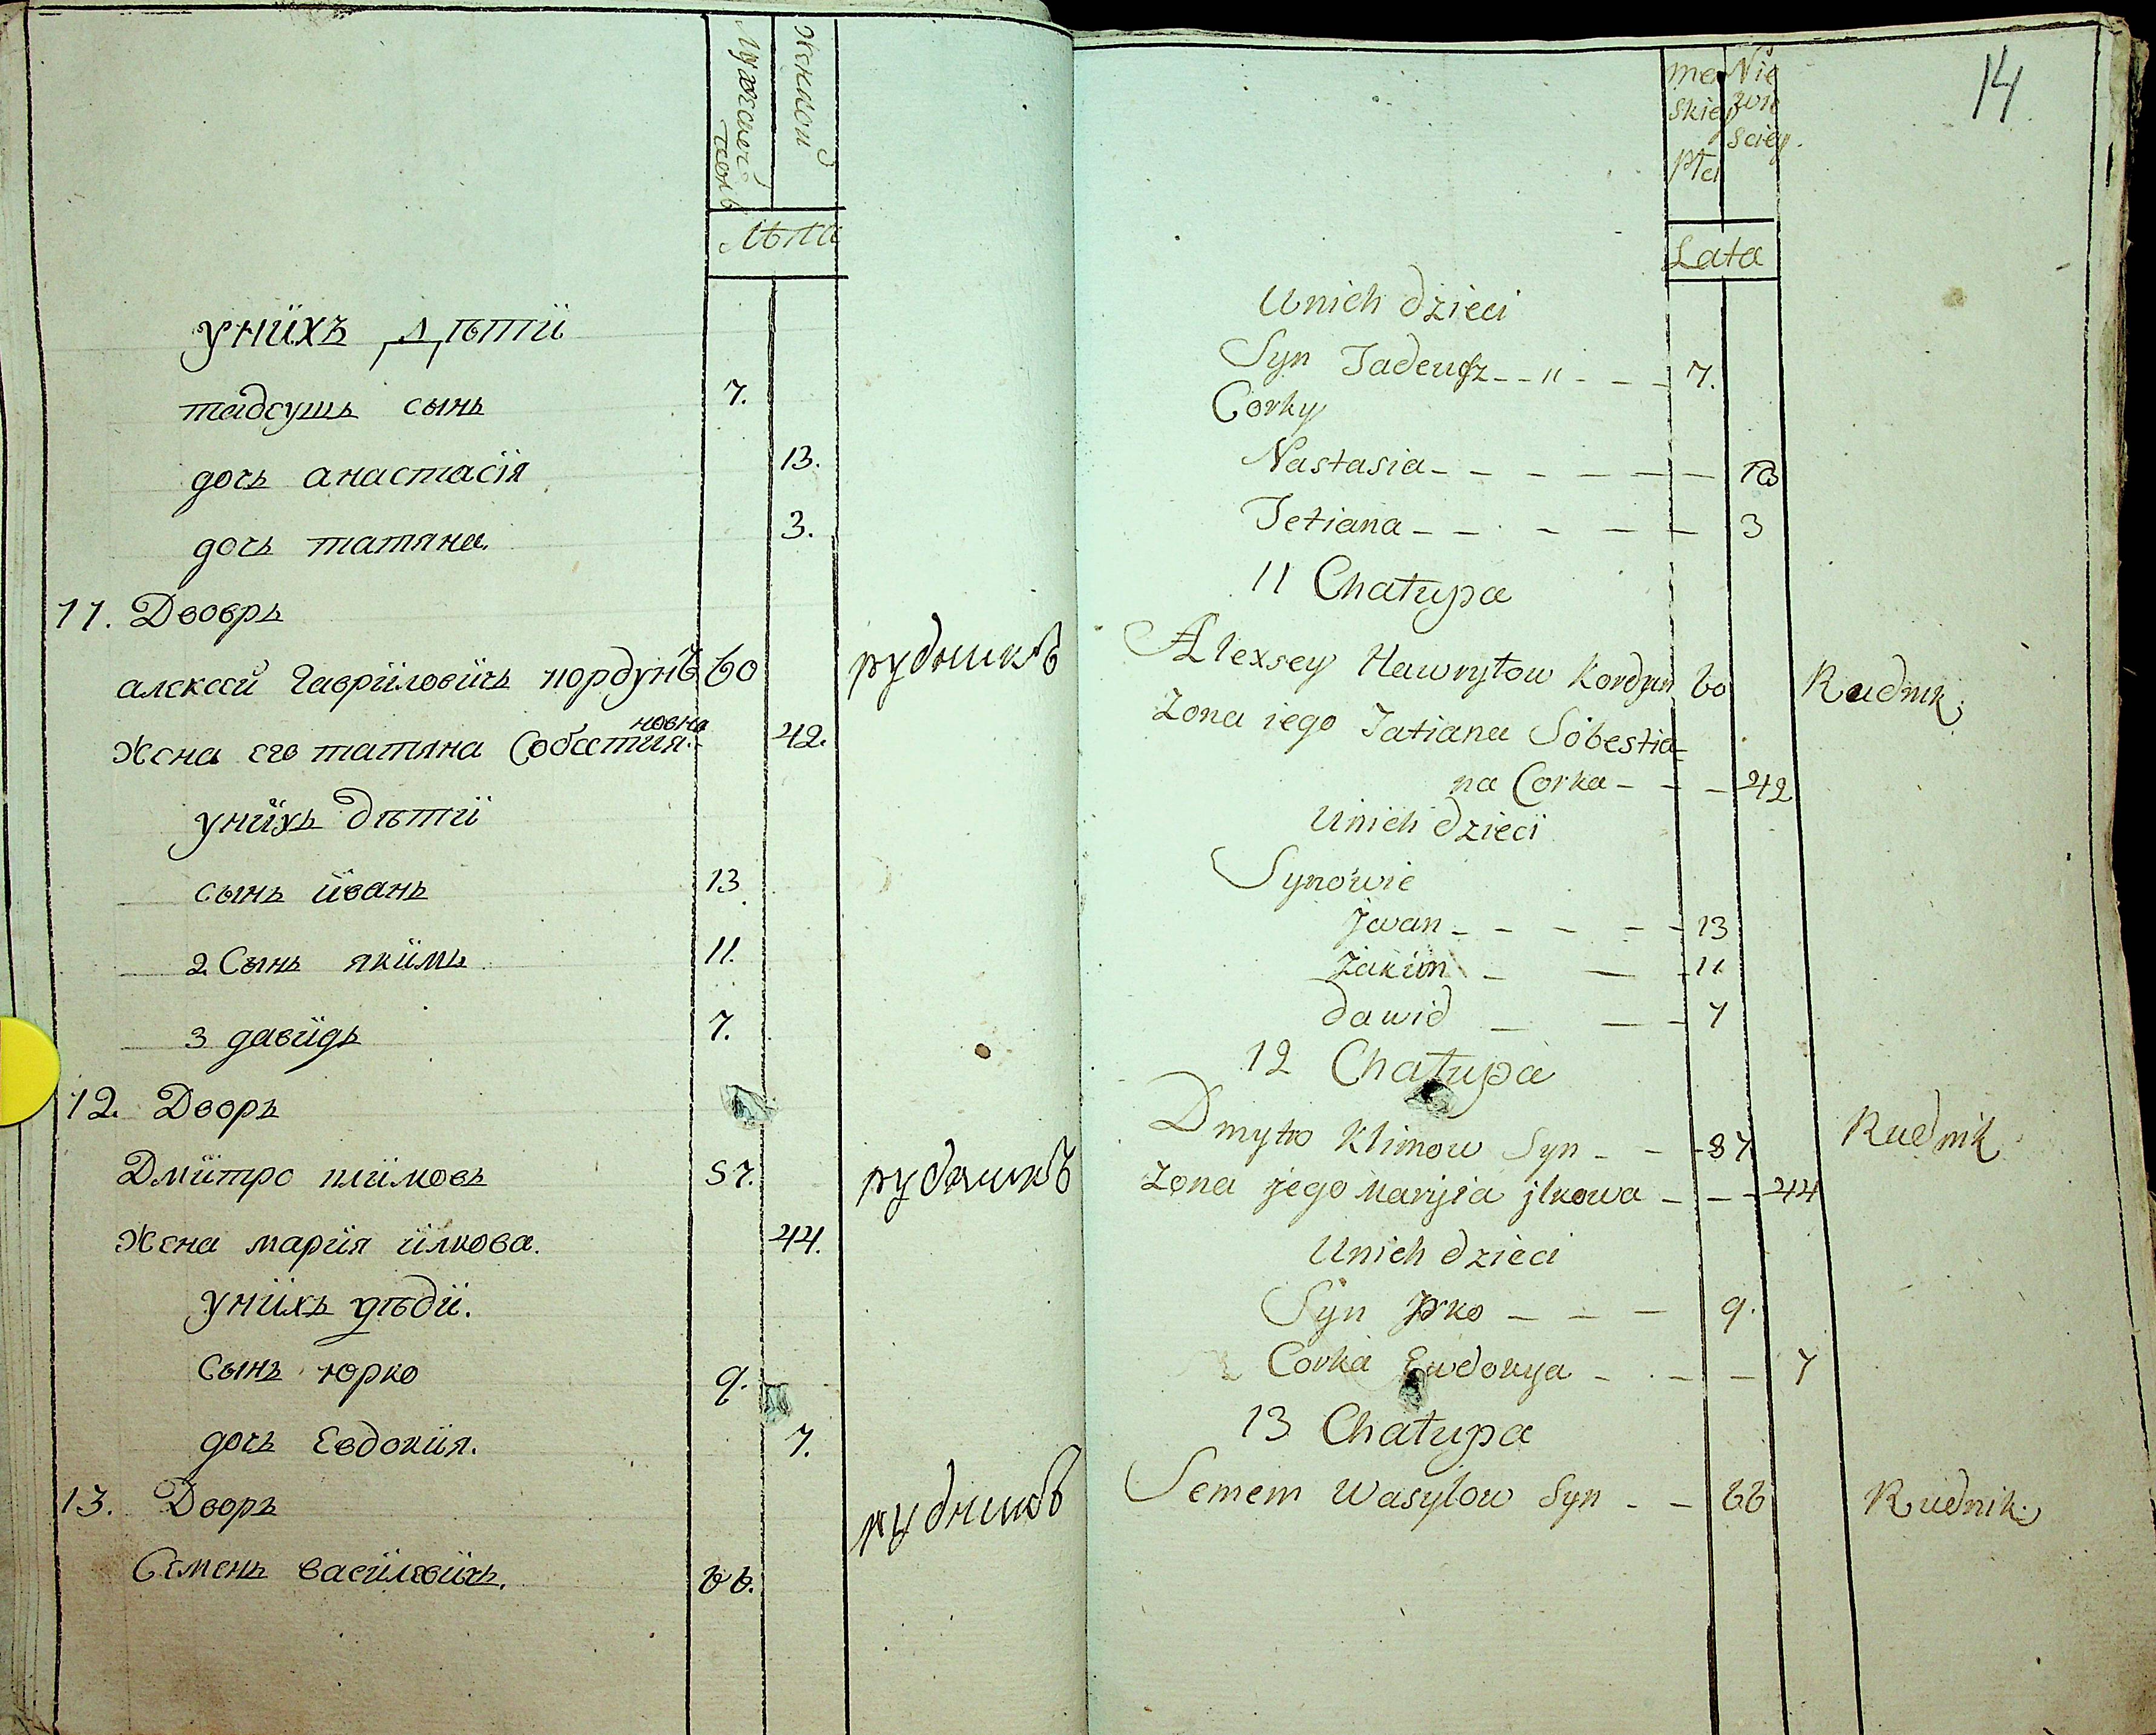 Мужеской полъ
Женской
Лѣта
унїхъ дѣтї
тадеушъ сынъ 7.
дочь анастасїя 13.
дочь татяна. 3.
11. Дворъ
алексей Гаврїловїчь кордунъ 60 рудникъ
Жена его татяна Собестиановна 42.
унїхъ дѣтї
сынъ їванъ 13
2 Сынъ якїмъ 11.
3 давїдъ 7.
12. Дворъ
Дмїтро клїмовъ 57. рудникъ
Жена марїя їлкова. 44.
унїхъ дѣдї.
Сынъ юрко 9.
дочь Евдокїя. 7.
13. Дворъ рудникъ
Семенъ васїлевїчь. 66.
14
męskiey Płci
Niewieściey.
Lata
Unich dzieci
Syn Tadeusz 7.
Corky
Nastasia 13
Tetiana 3
11 Chałupa
Alexsey Hawryłow Kordun 60 Rudnik
Zona iego Tatiana Sobestia
na Corka 42
Unich dzieci
Synowie
Jwan 13
Jakim 11
dawid 7
12 Chałupa
Dmytro Klimow Syn 57 Rudnik
Zona jego Maryia jlkowa 44
Unich dzieci
Syn Jurko 9.
Corka Ewdokya 7
13 Chałupa
Semem Wasylow Syn 66 Rudnik